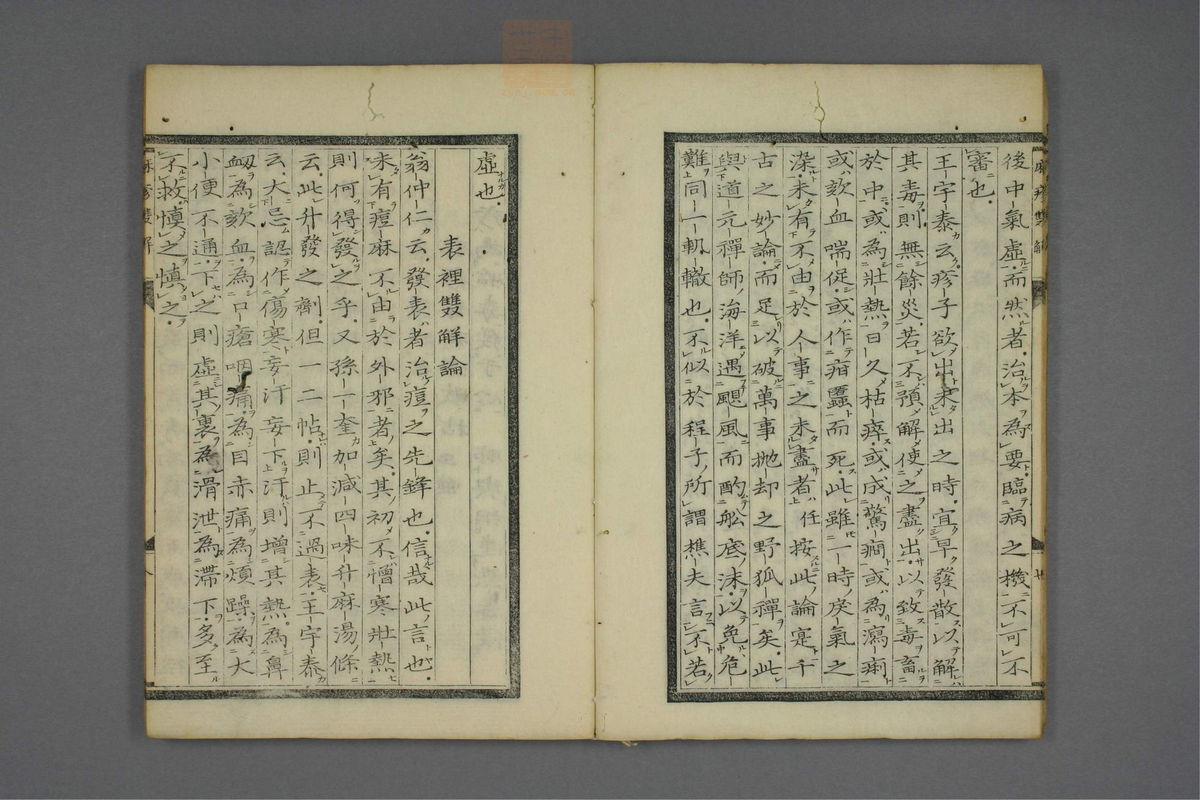 後中氣虛而然者治本為要臨病之機不可不
審也
王宇泰云疹子欲出未出之時宜早發散以解
其毒則無餘災若不預解使之盡出以致毒蓄
於中或為壯熱日久枯瘁或成驚癇或為瀉痢
或欬血喘促或作疳䘌而死此雖一時戾氣之
染未有不由於人事之未盡者任按此論寔千
古之妙論而足以破萬事拋却之野狐禪矣此
與道元禪師海洋遇颶風而酌舩底沫以免危
難同一軌轍也不似於程子所謂樵夫言不若
虛也
表裡雙解論
翁仲仁云發表者治痘之先鋒也信哉此言也
未有痘麻不由於外邪者矣其初不憎寒壯熱
則何得發之乎又孫一奎加減四味升麻湯條
云此升發之劑但一二帖則止不過表王宇泰
云大忌認作傷寒妄汗妄下汗則增其熱為鼻
衂為欬血為口瘡咽痛為目赤痛為煩躁為大
小便不通下之則虛其裏為滑泄為滯下多至
不救慎之慎之